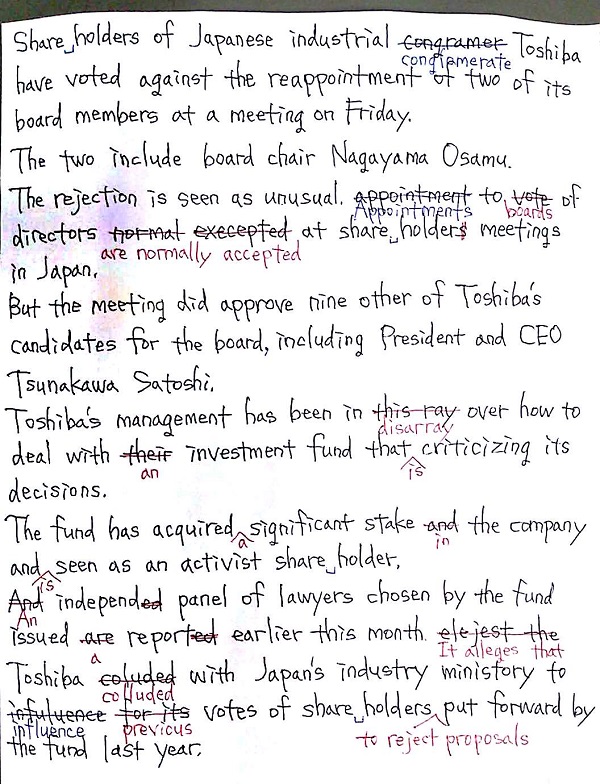 Share holders of Japanese industrial congramer Toshiba
conglomerate
have voted against the reappointment of two of its
board members at a meeting on Friday.
The two include board chair Nagayama Osamu.
The rejection is seen as unusual. appointment to vote of
Appointments boards
directors normal execepted at share holders meetings
are normally accepted
in Japan.
But the meeting did approve nine other of Toshiba's
candidates for the board, including President and CEO
Tsunakawa Satoshi.
Toshiba's management has been in this ray over how to
disarray
deal with their investment fund that criticizing its
an is
decisions.
The fund has acquired significant stake and the company
a in
and seen as an activist share holder.
is
And independed panel of lawyers chosen by the fund
An
issued are reported earlier this month. elejest the
a It alleges that
Toshiba coluded with Japan's industry ministory to
colluded
infuluence for its votes of share holders put forward by
influence previous to reject proposals
the fund last year.